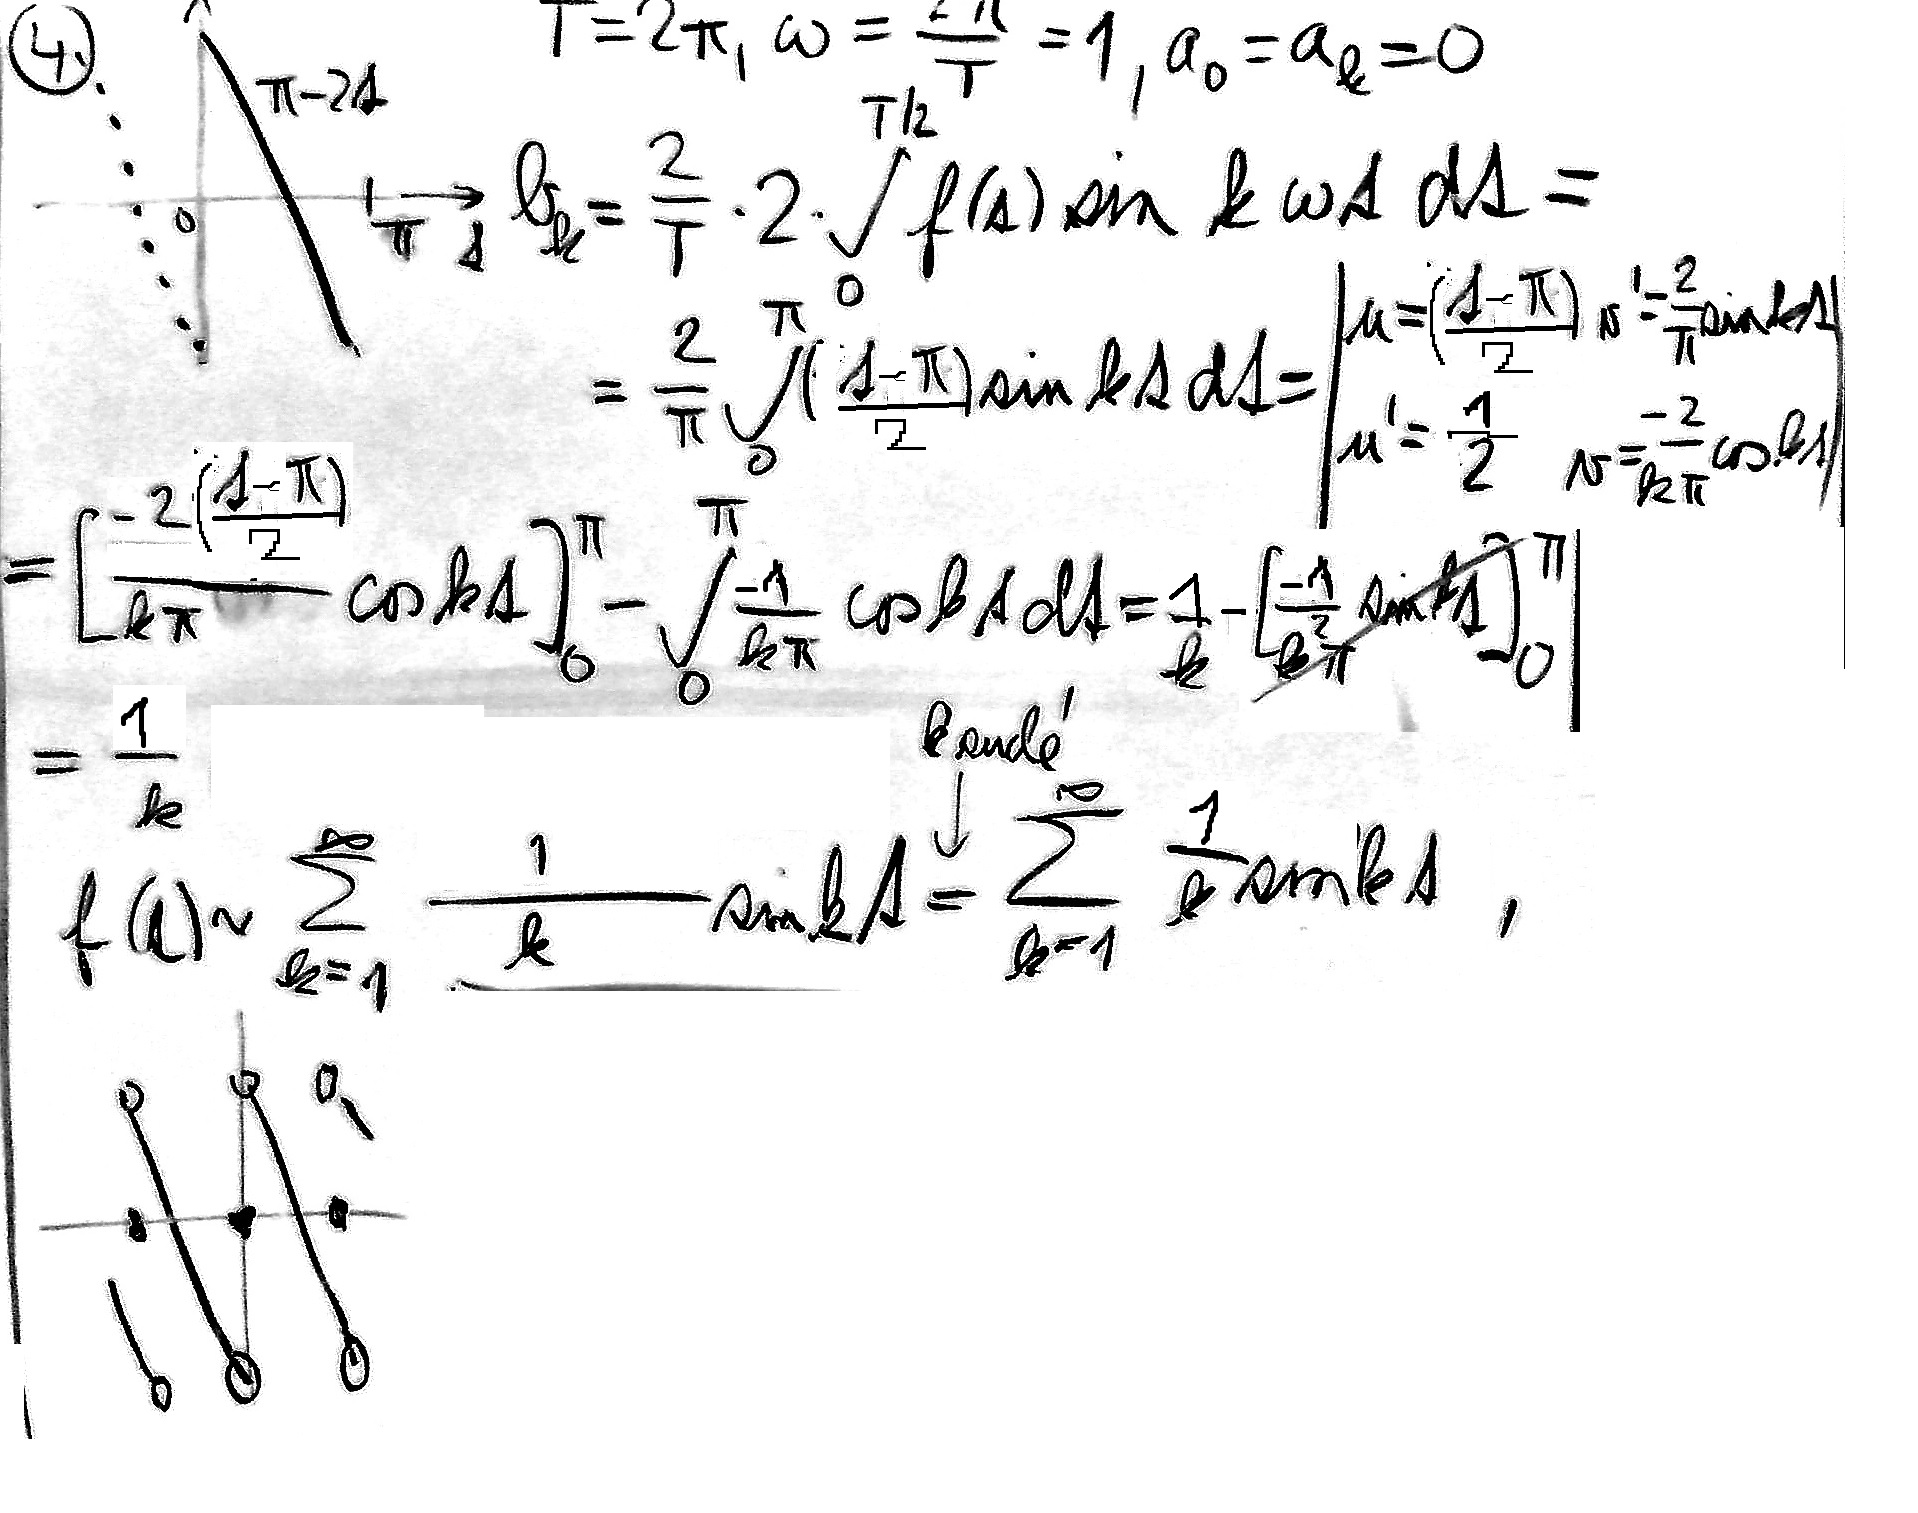 ④. T=2π, ω = 2π/T = 1, a₀ = aₖ = 0
π-2s
0 π s bₖ = 2/T · 2 · ∫₀^{T/2} f(s) sin kωs ds =
= 2/π ∫₀^π ((s-π)/2) sin ks ds = | u = ((s-π)/2) v' = 2/π sin ks |
| u' = 1/2 v = -2/kπ cos ks |
= [ -2((s-π)/2)/kπ cos ks ]₀^π - ∫₀^π -1/kπ cos ks ds = 1/k - [ -1/k²π sin ks ]₀^π |
= 1/k
k sudé
f(s) ~ ∑_{k=1}^∞ 1/k sin ks = ∑_{k=1}^∞ 1/k sin ks ,